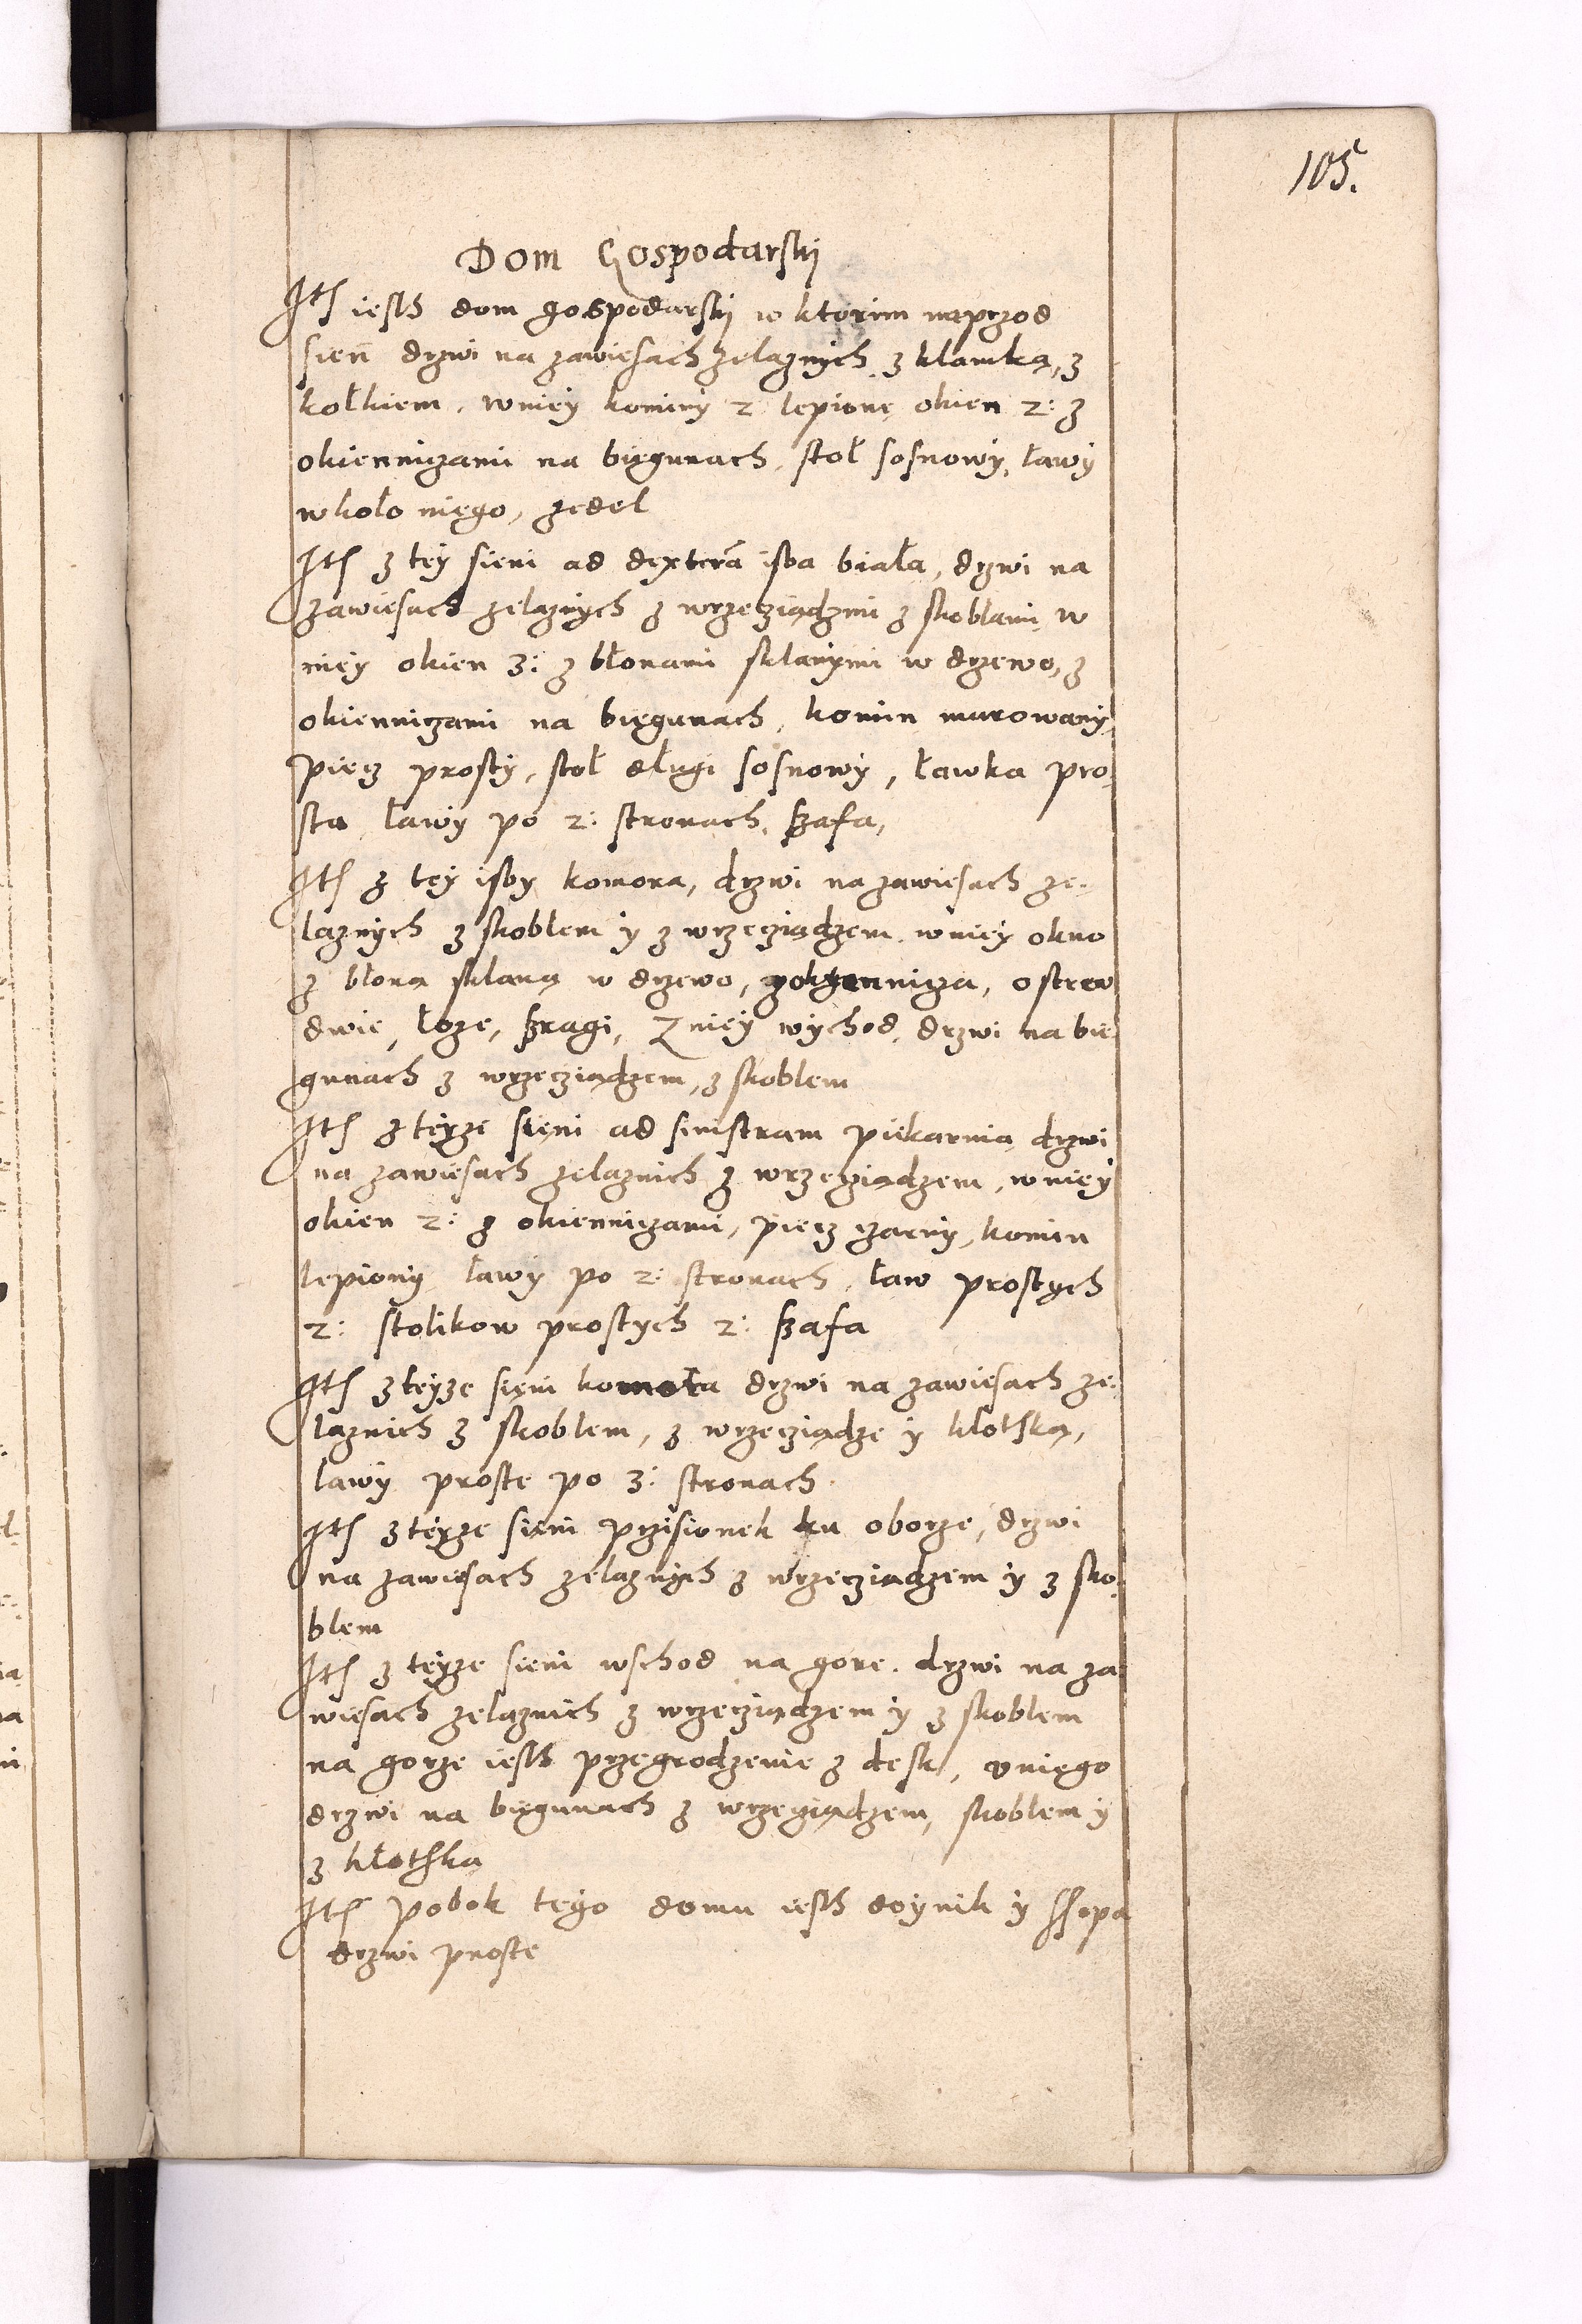 105.
Dom Gospodarski
Itē iesth dom gospodarski w ktorim naprzod
sień drzwi na zawiesach zelaznych z klamką, z
kołkiem, wniey kominy 2 lepione okien 2: z
okienniczami na biegunach, stoł sosnowy, ławy
wkoło niego, zedel
Itē z tey sieni ad dexterā isba biała, drzwi na
zawiesach zelaznych z wrzecziądzmi z skoblami, w
niey okien 3: z błonami sklanymi w drzewo, z
okienniczami na biegunach, komin murowany,
piecz prosty, stoł długi sosnowy, ławka pro-
sta ławy po 2: stronach, szafa,
Itē z tey isby komora, drzwi na zawiesach ze-
laznych z skoblem y z wrzecziądzem, wniey okno
z błona sklaną w drzewo, z okiennicza, ostrew
dwie, łoze, szragi, Z niey wychod, drzwi na bie
gunach z wrzecziądzem, z skoblem
Itē z teyze sieni ad sinistram piekarnia drzwi
na zawiesach zelaznich z wrzecziądzem, wniey
okien 2: z okienniczami, piecz czarny, komin
lepiony ławy po 2: stronach, ław prostych
2: stolikow prostych 2: szafa
Itē z teyze sieni komora drzwi na zawiesach ze-
laznich z skoblem, z wrzecziądze y kłothką,
ławy proste po 3: stronach.
Itē z teyze sieni przisionek ku oborze, drzwi
na zawiesach zelaznych z wrzecziądzem y z sko-
blem
Itē z teyze sieni wschod na gore. drzwi na za
wiesach zelaznich z wrzecziądzem y z skoblem
na gorze iesth przegrodzenie z desk, v niego
drzwi na biegunach z wrzecziądzem, skoblem y
z kłothka
Itē pobok tego domu iesth doynik y ssopa
drzwi proste